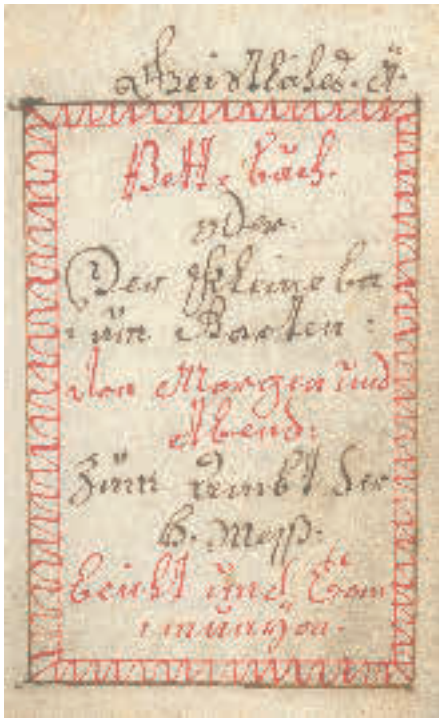 Geistliches.
Bett-buch.
oder
Der Kleine ba
um Garten:
den Morgen und
Abend:
Zum ambt der
H. Mess.
beicht und Com
munion.